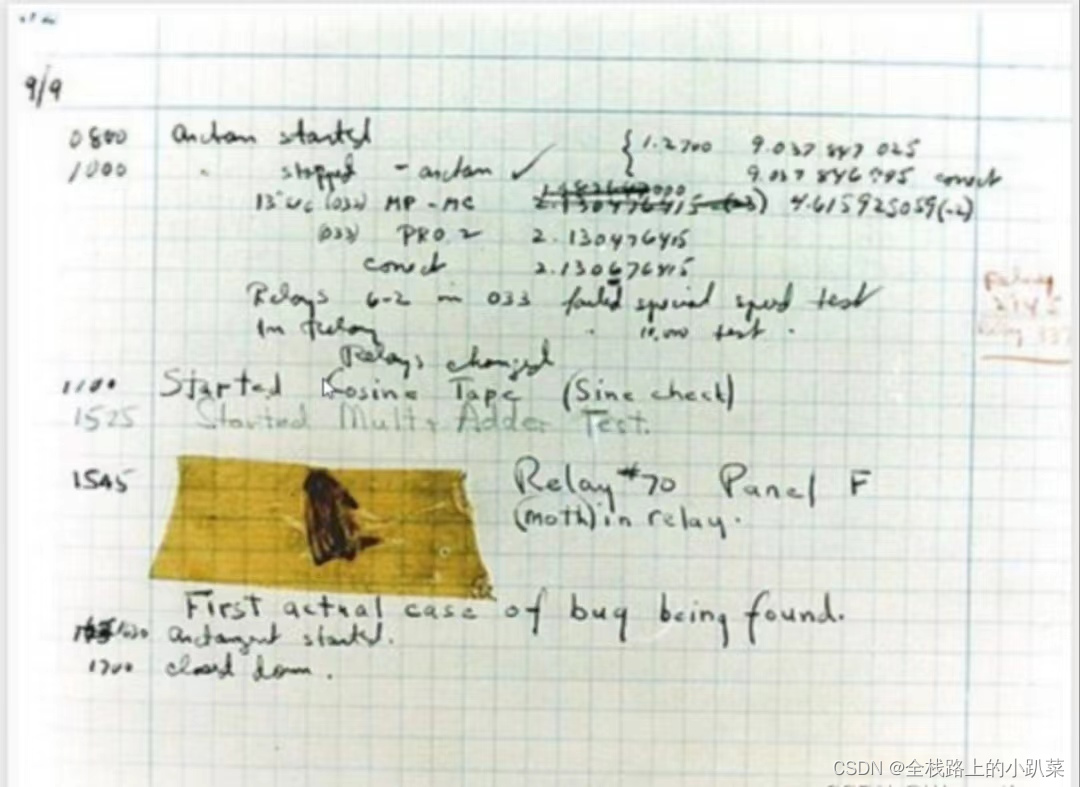 9/9
0800 arctan started { 1.2700 9.037 847 025
1000 " stopped - arctan ✓ 9.037 846 995 correct
13"uc (032) MP - MC 4.615925059(-2)
(033) PRO 2 2.130476415
correct 2.130676415
Relays 6-2 in 033 failed special speed test
In Relay " 10,000 test .
Relays changed
Relay
2145
Relay
1100 Started Cosine Tape (Sine check)
1525 Started Mult+ Adder Test.
1545 Relay #70 Panel F
(moth) in relay.
First actual case of bug being found.
1630 arctangent started.
1700 closed down.
CSDN @全栈路上的小趴菜